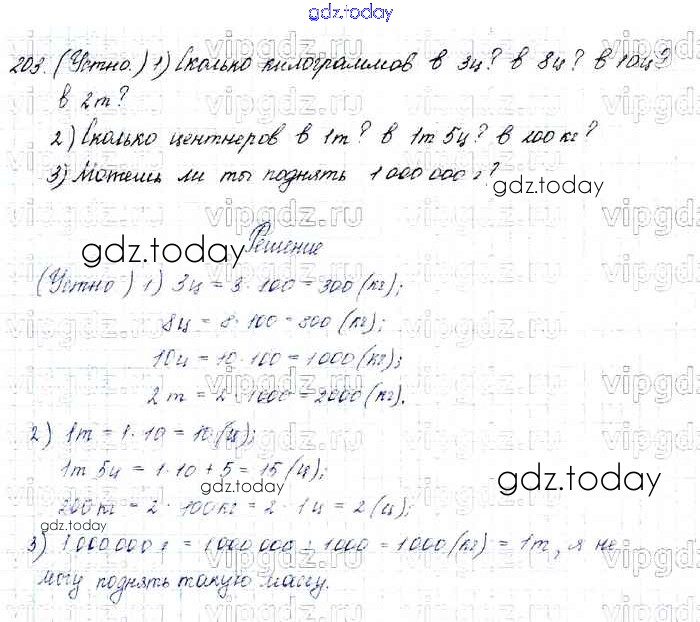 gdz.today
203. (Устно.) 1) Сколько килограммов в 3ц? в 8ц? в 10ц?
в 2т?
2) Сколько центнеров в 1т? в 1т 5ц? в 200кг?
3) Можешь ли ты поднять 1 000 000 г?
gdz.today
Решение
gdz.today
(Устно) 1) 3ц = 3 · 100 = 300 (кг);
8ц = 8 · 100 = 800 (кг);
10ц = 10 · 100 = 1000 (кг);
2т = 2 · 1000 = 2000 (кг).
2) 1т = 1 · 10 = 10 (ц);
1т 5ц = 1 · 10 + 5 = 15 (ц);
gdz.today
200кг = 2 · 100кг = 2 · 1ц = 2 (ц);
gdz.today
3) 1 000 000 г = 1 000 000 : 1000 = 1000 (кг) = 1т, я не
могу поднять такую массу.